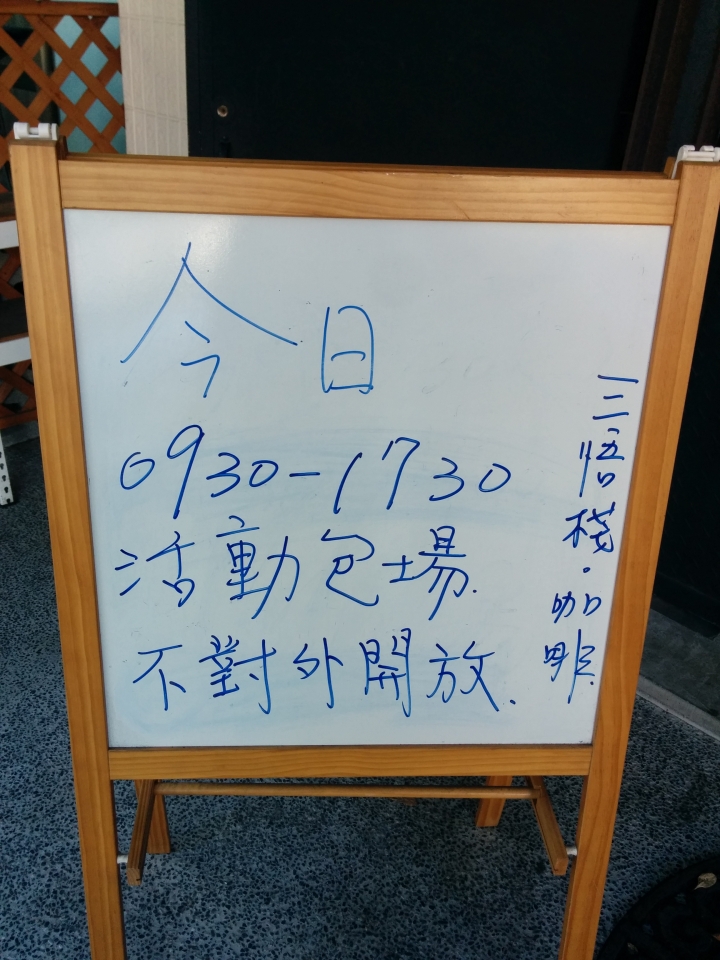 今日
0930-1730
活動包場.
不對外開放.
三悟棧·咖啡